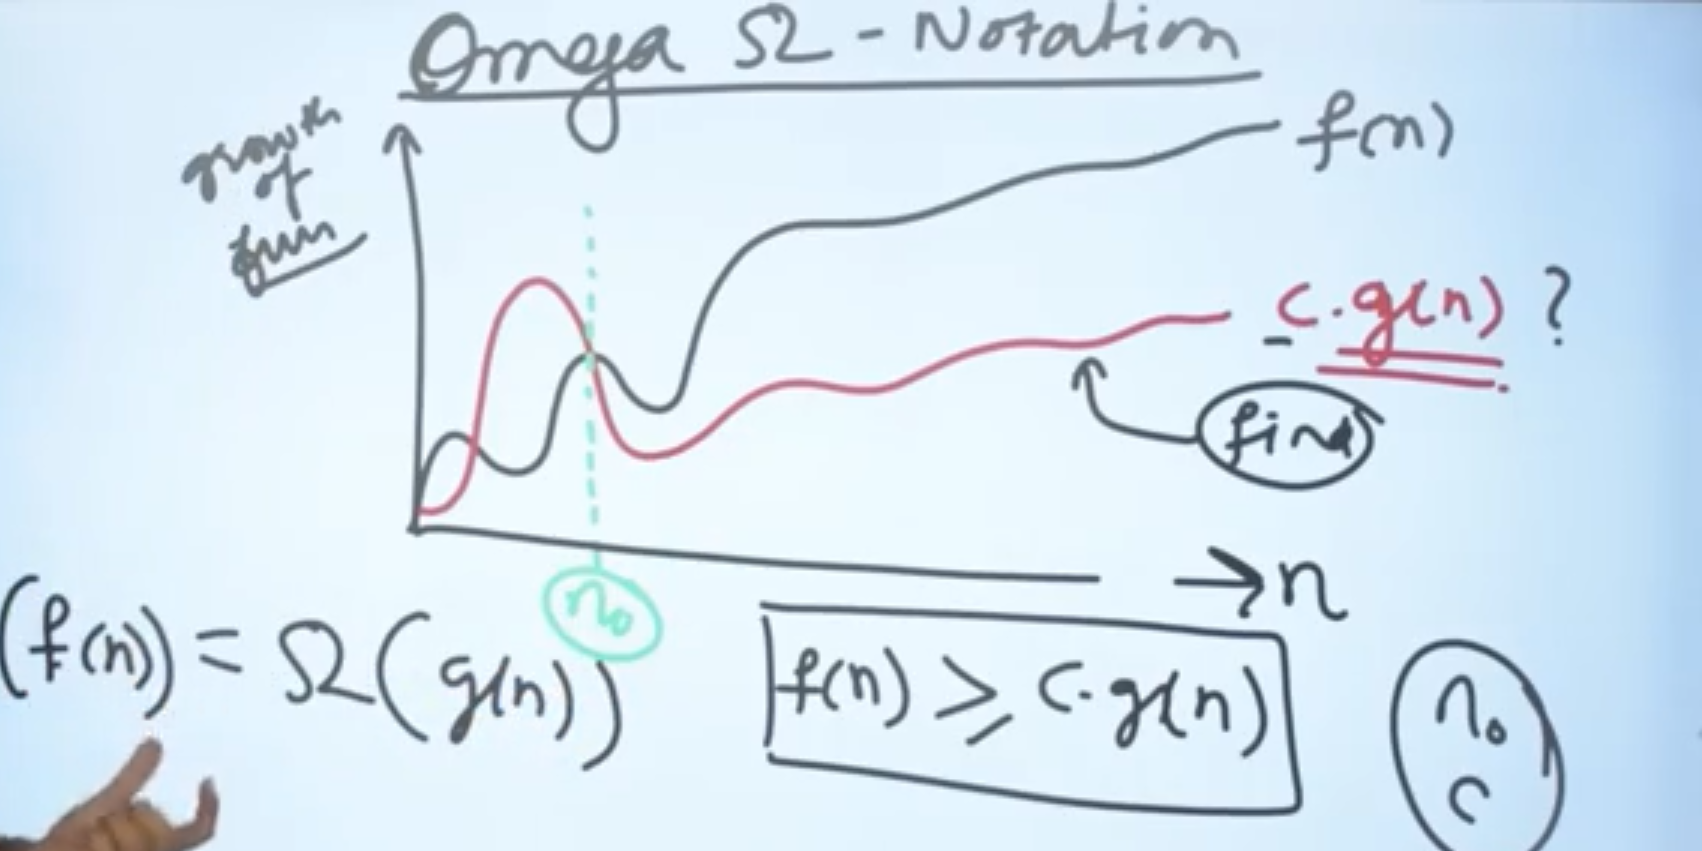 Omega Ω - Notation
growth
of
fun
f(n)
c.g(n) ?
find
n
n₀
(f(n)) = Ω(g(n))
f(n) ≥ c.g(n)
n₀
c